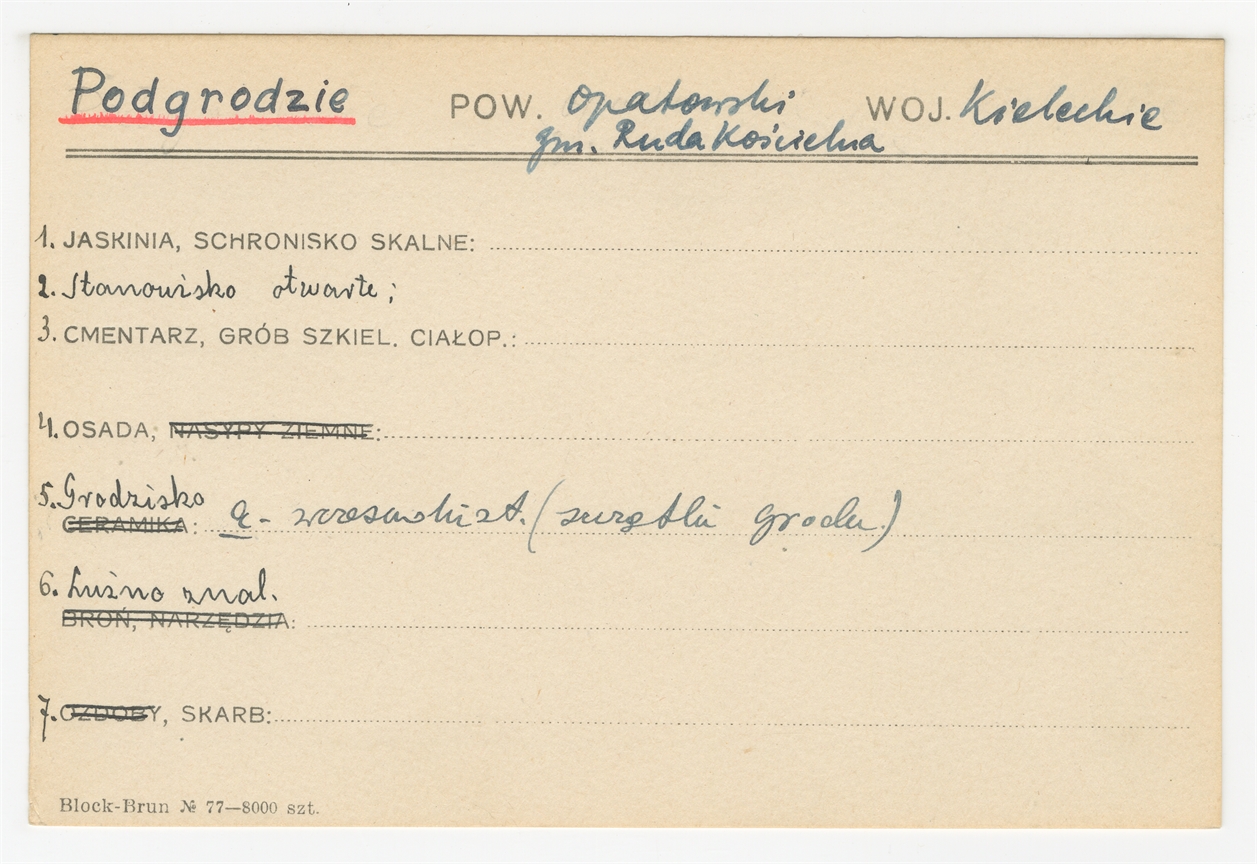 Podgrodzie POW. opatowski WOJ. Kieleckie
gm. Ruda Kościelna
1. JASKINIA, SCHRONISKO SKALNE:
2. Stanowisko otwarte;
3. CMENTARZ, GRÓB SZKIEL. CIAŁOP.:
4. OSADA, NASYPY ZIEMNE:
5. Grodzisko
CERAMIKA: wczesnohist. (szczątki grodu)
6. Luźno znal.
BROŃ, NARZĘDZIA:
7. OZDOBY, SKARB:
Block-Brun № 77—8000 szt.